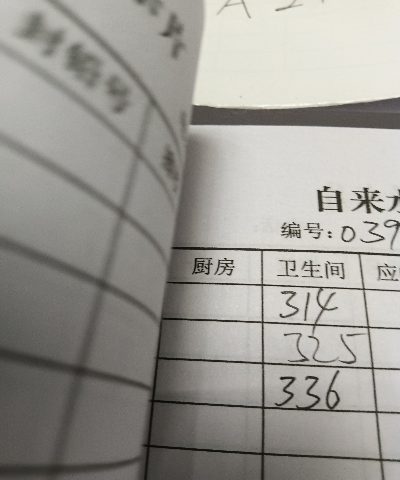 封铅号
自来水
编号:039
厨房 卫生间 应
314
325
336